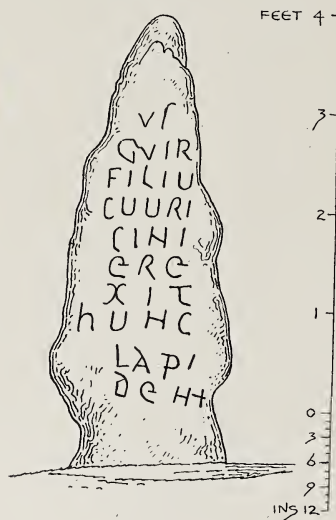 FEET 4
3
2
1
0
3
6
9
INS 12
VS
GVIR
FILIU
CUURI
CINI
ERE
XIT
hUNC
LAPI
DEM